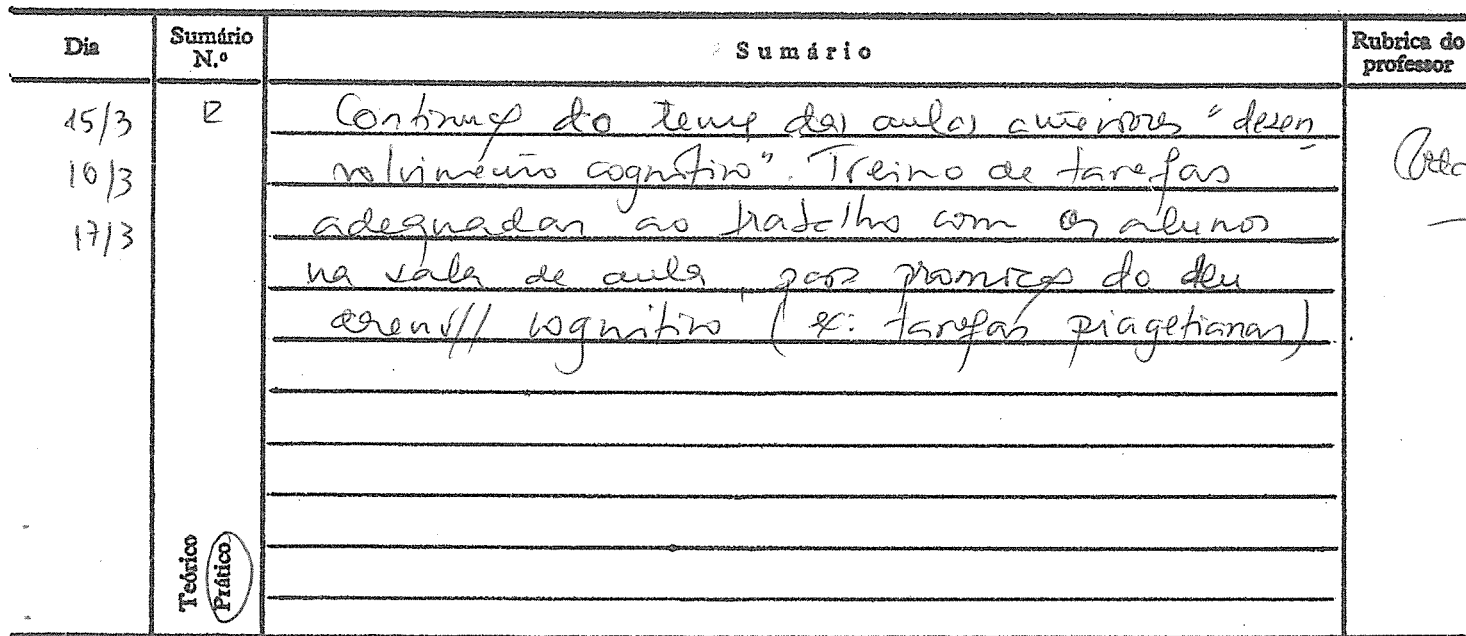 Dia Sumário N.º Sumário Rubrica do professor
15/3 12 Continuação do tema das aulas anteriores "desen
16/3 volvimento cognitivo". Treino de tarefas
17/3 adequadas ao trabalho com os alunos
na sala de aula, para promoção do seu
desenv// cognitivo (ex: tarefas piagetianas)
Teórico
Prático